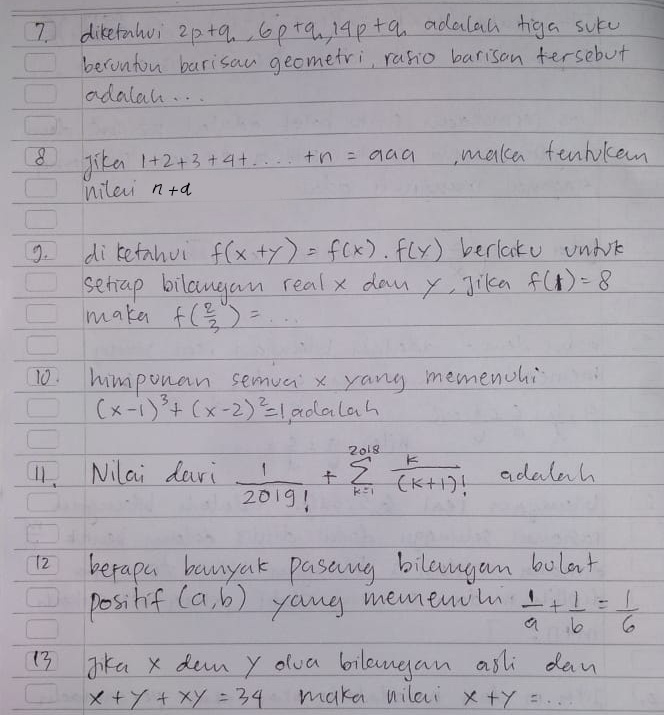 7. diketahui 2p+q, 6p+q, 14p+q adalah tiga suku
beruntun barisan geometri, rasio barisan tersebut
adalah...
8 Jika 1+2+3+4+.....+n = aaa, maka tentukan
nilai n+a
9. diketahui f(x+y) = f(x).f(y) berlaku untuk
setiap bilangan real x dan y, Jika f(1)=8
maka f(2/3) = ...
10. himpunan semua x yang memenuhi
(x-1)³+(x-2)²=1, adalah
11. Nilai dari 1/2019! + 2018 Σ k=1 K/(K+1)! adalah
12 berapa banyak pasang bilangan bulat
positif (a,b) yang memenuhi 1/a + 1/b = 1/6
13 Jika x dan y dua bilangan asli dan
x+y+xy = 34 maka nilai x+y = ...